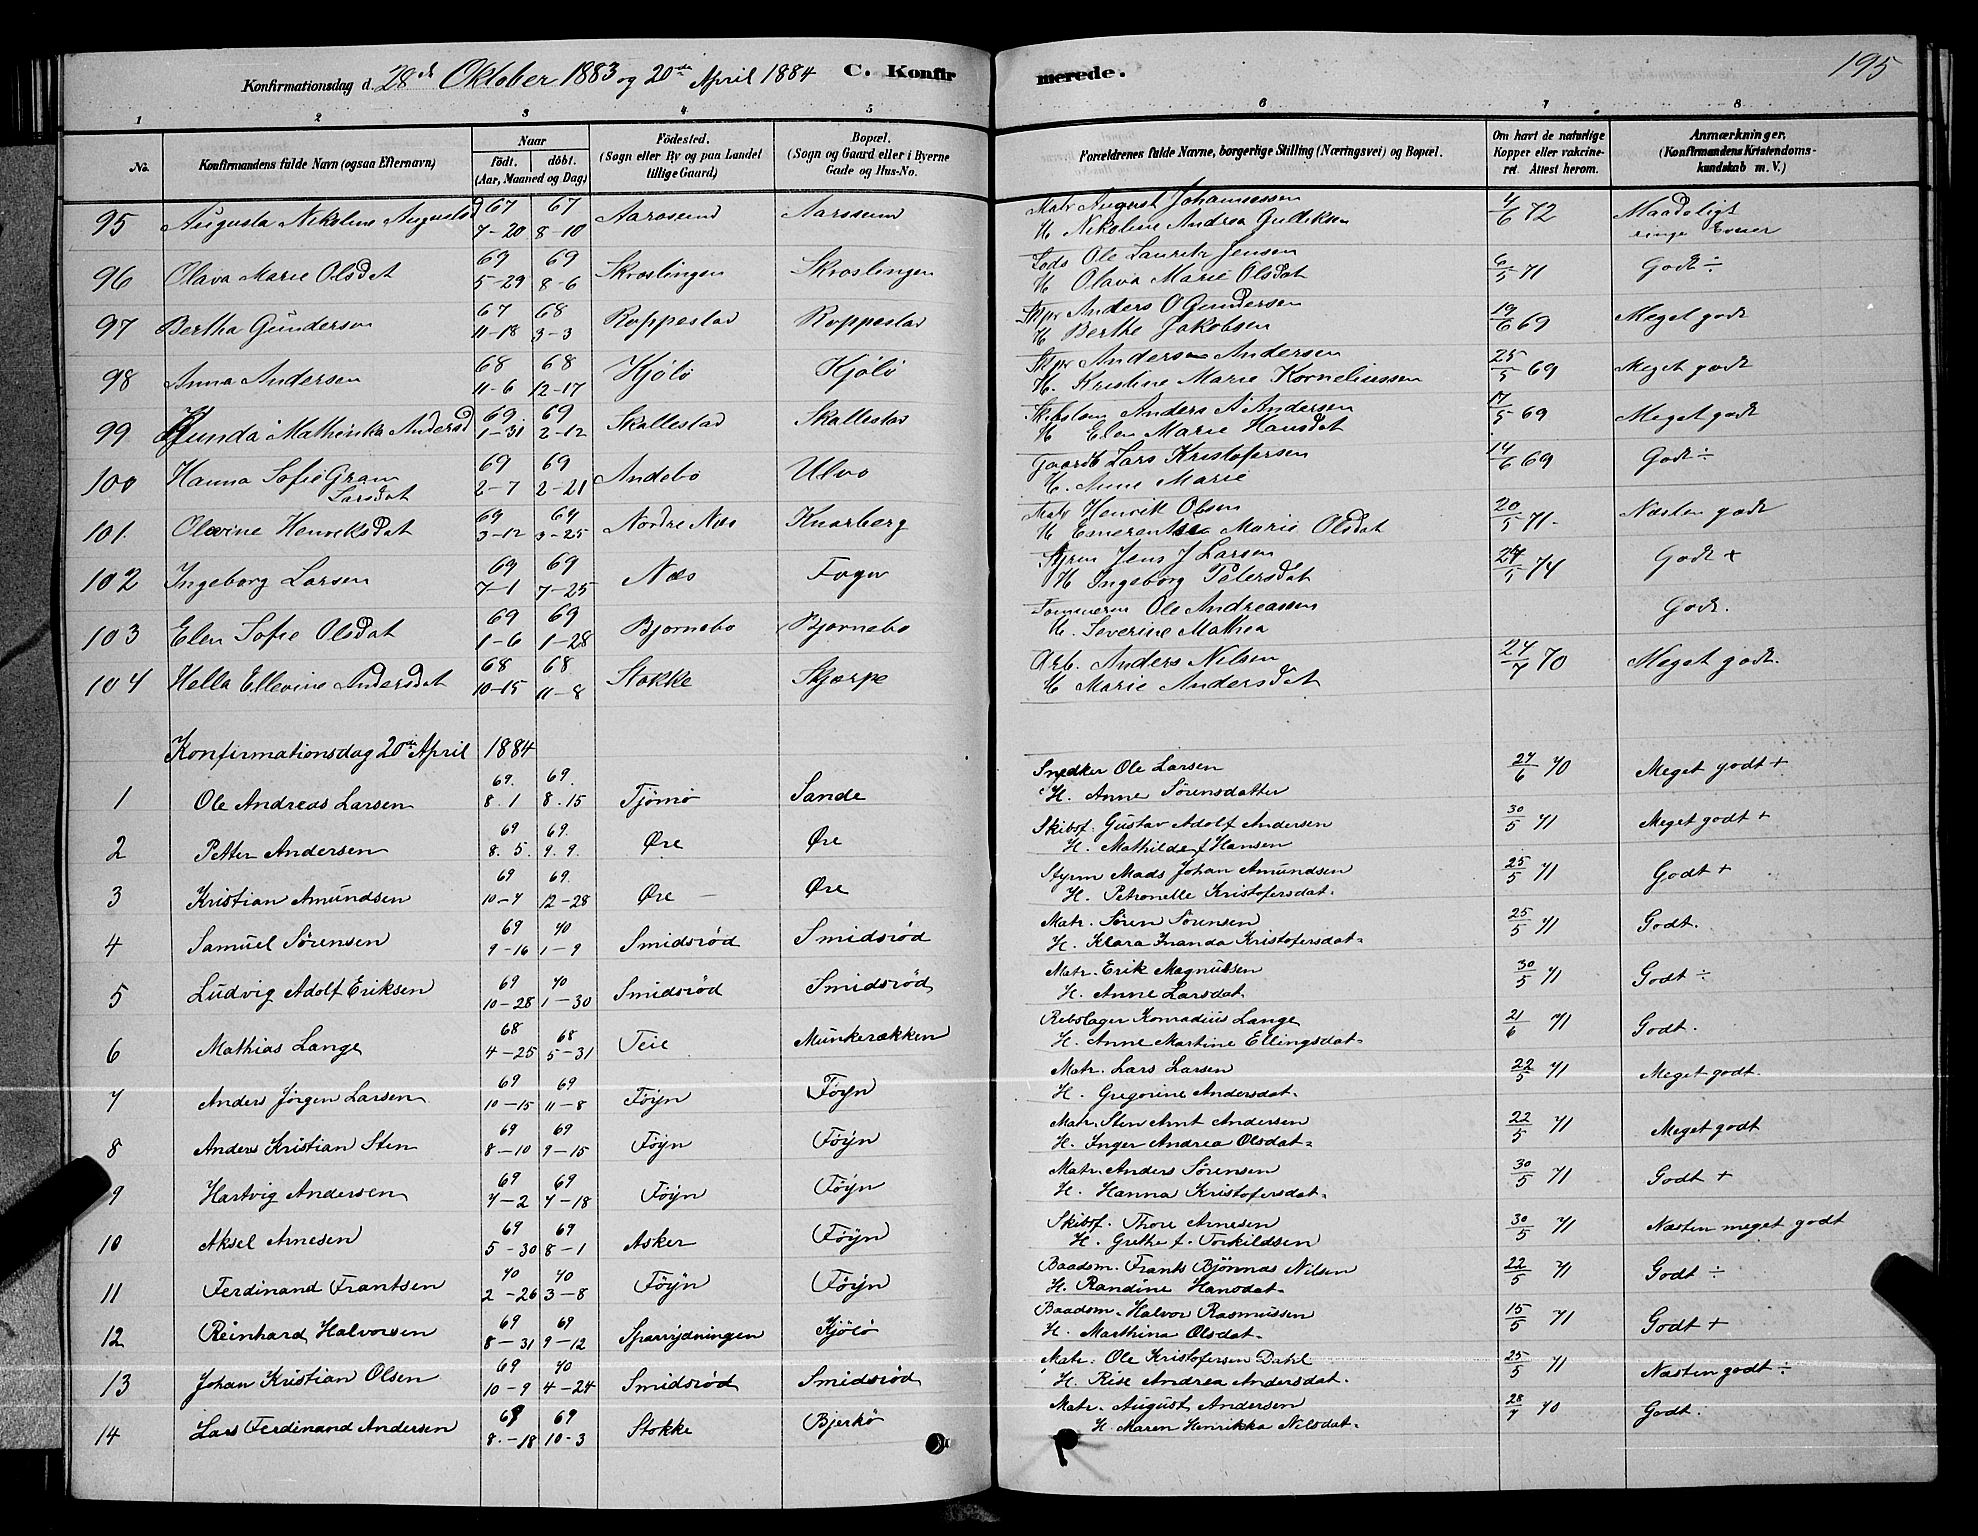 Konfirmationsdag d. 28de Oktober 1883 og 20de April 1884 C. Konfirmerede. 195
1 2 3 4 5 6 7 8
No. Konfirmandens fulde Navn (ogsaa Efternavn) Naar født. døbt. (Aar, Maaned og Dag) Fødested. (Sogn eller By og paa Landet tillige Gaard) Bopæl. (Sogn og Gaard eller i Byerne Gade og Hus-No. Forældrenes fulde Navne, borgerlige Stilling (Næringsvei) og Bopæl. Om havt de naturlige Kopper eller vakcineret. Attest herom. Anmærkninger. (Konfirmandens Kristendomskundskab m. V.)
95 Augusta Nikoline Augustsd 67 7-20 67 8-10 Aarøsund Aarøsund Matr August Johannessen
H Nikoline Andrea Gulliksen 4/6 72 Maadeligt ringe Evner
96 Olava Marie Olsdat 69 5-29 69 8-6 Skroslingen Skroslingen Lods Ole Lauritz Jensen
H Olava Marie Olsdat 6/5 71 Godt ÷
97 Bertha Gundersen 67 11-18 68 3-3 Roppestad Roppestad Skpr Anders O Gundersen
H Berthe Jakobsen 19/6 69 Meget godt
98 Anna Andersen 68 11-6 68 12-17 Hjölö Kjölö Skpr Anders Andersen
H. Kristine Marie Korneliussen 25/5 69 Meget godt
99 Hunda Mathinka Andersd 69 1-31 69 2-12 Skallestad Skallestad Anders A Andersen
H Elen Marie Hansdat 17/5 69 Meget godt
100 Hanna Sofie Gram Larsdat 69 2-7 69 2-21 Andebo Ulvø Gaardb Lars Kristofersen
H. Anne Marie 14/6 69 Godt ÷
101. Olavine Henriksdat 69 3-12 69 3-25 Nordre Næs Knarberg Matr Henrik Olsen
H Emerentse Marie Olsdat 20/5 71. Næsten godt
102 Ingeborg Larsen 69 7-1 69 7-25 Næs Føyn Styrm Jens J Larsen
H Ingeborg Petersdat 27/5 74 Godt +
103 Elen Sofie Olsdat 69 1-6 69 1-28 Bjornebo Bjornebo Tømmerm Ole Andreassen
H. Severine Mathea Godt.
104 Hella Ellevine Andersdat 68 10-15 68 11-8 Stokke Skjærpe Arb. Anders Nilsen
H Marie Andersdat 24/7 70 Meget godt.
Konfirmationsdag 20de April 1884
1 Ole Andreas Larsen 69. 8.1 69. 8.15 Tjömö Sande Snedker Ole Larsen
H. Anne Sörensdatter 27/6 70 Meget godt +
2 Petter Andersen 69 8.5. 69. 9.9. Øre Øre Skibsf. Gustav Adolf Andersen
H. Mathilde f Hansen 30/5 71 Meget godt +
3 Kristian Amundsen 69 10-7 69. 12-28 Øre Øre Styrm Mads Johan Amundsen
H. Petronelle Kristofersdat. 25/5 71 Godt +
4 Samuel Sörensen 69 9-16 70 1-9 Smidsröd Smidsröd Matr. Sören Sörensen
H. Klara Inanda Kristofersdat. 25/5 71 Godt.
5 Ludvig Adolf Eriksen 69 10-28 70 1-30 Smidsröd Smidsröd Matr. Erik Magnussen
H. Anne Larsdat. 30/5 71 Godt ÷
6 Mathias Lange 68 4-25 68 5-31 Teie Munkerækken Rebslager Konradius Lange
H. Anne Martine Ellingsdat. 21/6 71 Godt.
7 Anders Jörgen Larsen 69 10-15 69 11-8 Föyn Föyn Matr. Lars Larsen
H. Gregorine Andersdat. 22/5 71 Meget godt.
8 Anders Kristian Sten 69 8-10 69 9-15 Föyn Föyn Matr. Sten Arnt Andersen
H. Inger Andrea Olsdat. 22/5 71 Meget godt
9 Hartvig Andersen 69 7-2 69 7-18 Föyn Föyn Matr. Anders Sörensen
H. Hanna Kristofersdat. 30/5 71 Godt +
10 Aksel Arnesen 69 5-30 69 8-1 Asker Föyn Skibsf. Thore Arnesen
H. Grethe f. Torkildsen 30/5 71 Næsten meget godt
11 Ferdinand Frantsen 70 2-26 70 3-8 Föyn Föyn Baadsm. Frants Bjönnas Nilsen
H. Randine Hansdat. 22/5 71 Godt ÷
12 Reinhard Halvorsen 69 8-31 69 9-12 Sparrydningen Kjölö Baadsm. Halvor Rasmussen
H. Marthina Olsdat. 15/5 71 Godt +
13 Johan Kristian Olsen 69 10-9 70 4-24 Smidsröd Smidsröd Matr. Ole Kristofersen Dahl
H. Rise Andrea Andersdat. 25/5 71 Næsten godt ÷
14 Lars Ferdinand Andersen 69 8.-18 69 10-3 Stokke Bjerkö Matr. August Andersen
H. Maren Henrikka Nilsdat. 28/7 70 Godt.